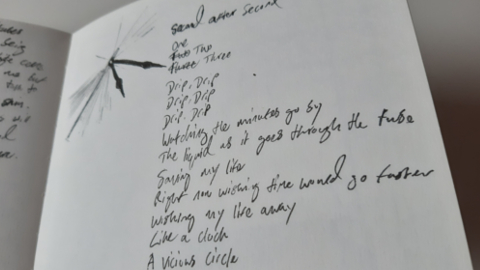 second after second
One
Two
Three
Drip. Drip
Drip. Drip
Drip. Drip
Watching the minutes go by
The liquid as it goes through the tube
Saving my life
Right now wishing time would go faster
Wishing my life away
Like a clock
A vicious circle